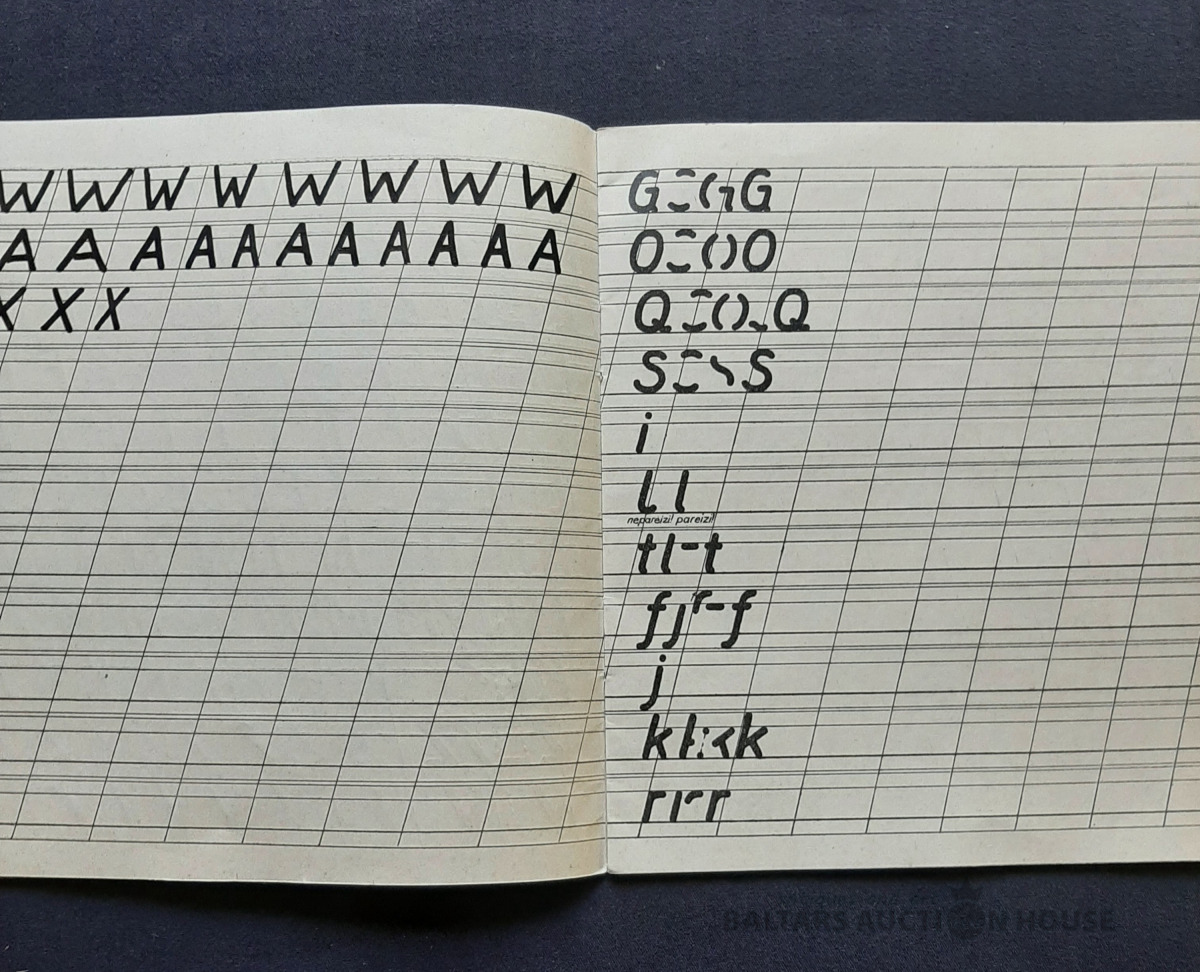 W W W W W W W W
A A A A A A A A A A A
X X X
G G G
O O O
Q Q Q
S S
i
l l
nepareizi! pareizi!
t l - t
f j r - f
j
k k
r ı r r
BALTARS AUCTION HOUSE